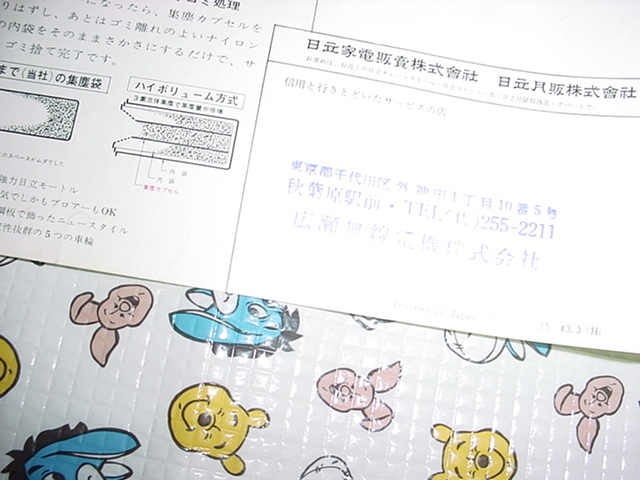 ゴミ処理
になったら、集塵カプセルを
りはずし、あとはゴミ離れのよいナイロン
の内袋をそのままさかさにするだけで、サ
ゴミ捨て完了です。
まで(当社)の集塵袋
ハイボリューム方式
3重立体集塵で集塵量が倍増
外 袋
内 袋
集塵カプセル
強力日立モートル
気でしかもブロアーもOK
鋼板で飾ったニュースタイル
性抜群の5つの車輪
日立家電販賣株式會社 日立月販株式會社
信用と行きとどいたサービスの店
東京都千代田区外神田1丁目10番5号
秋葉原駅前・TEL(代)255-2211
広瀬無線電機株式会社
Printed in Japan
11-43.3(H)